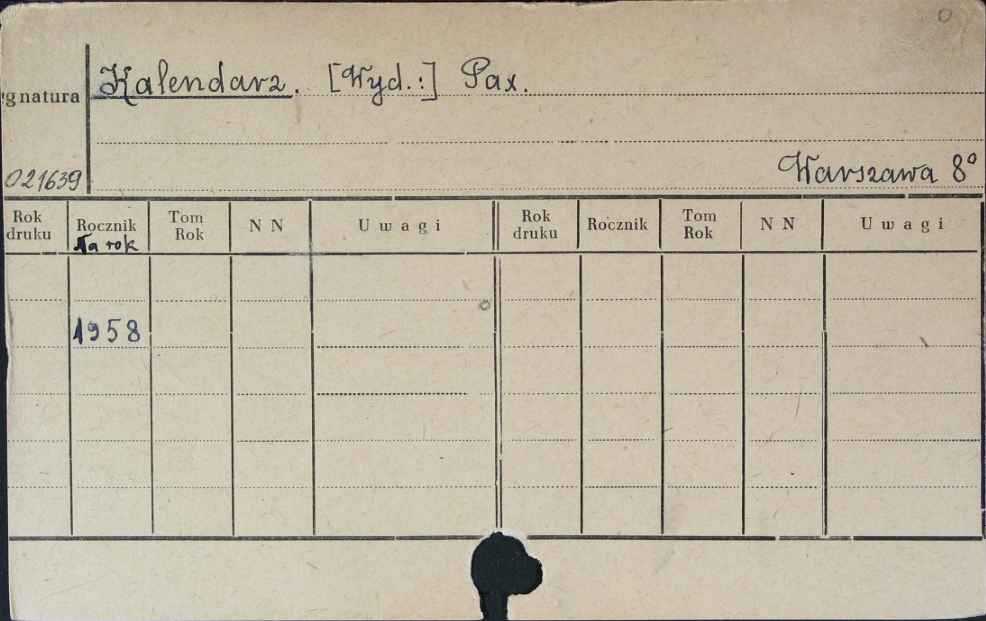 0
Kalendarz. [Wyd.:] Pax.
gnatura
Warszawa 8°
021639
Rok druku Rocznik Na rok Tom Rok N N Uwagi Rok druku Rocznik Tom Rok N N Uwagi
1958